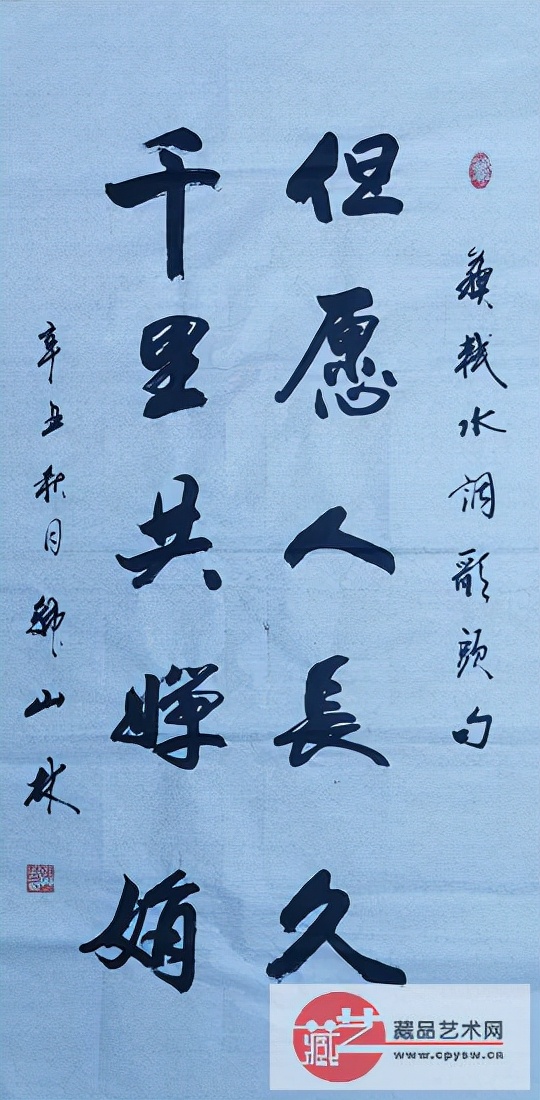 蘇軾水調歌頭句
但愿人長久
千里共嬋娟
辛丑秋月 山林
藏艺
藏品艺术网
www.cpysw.cn